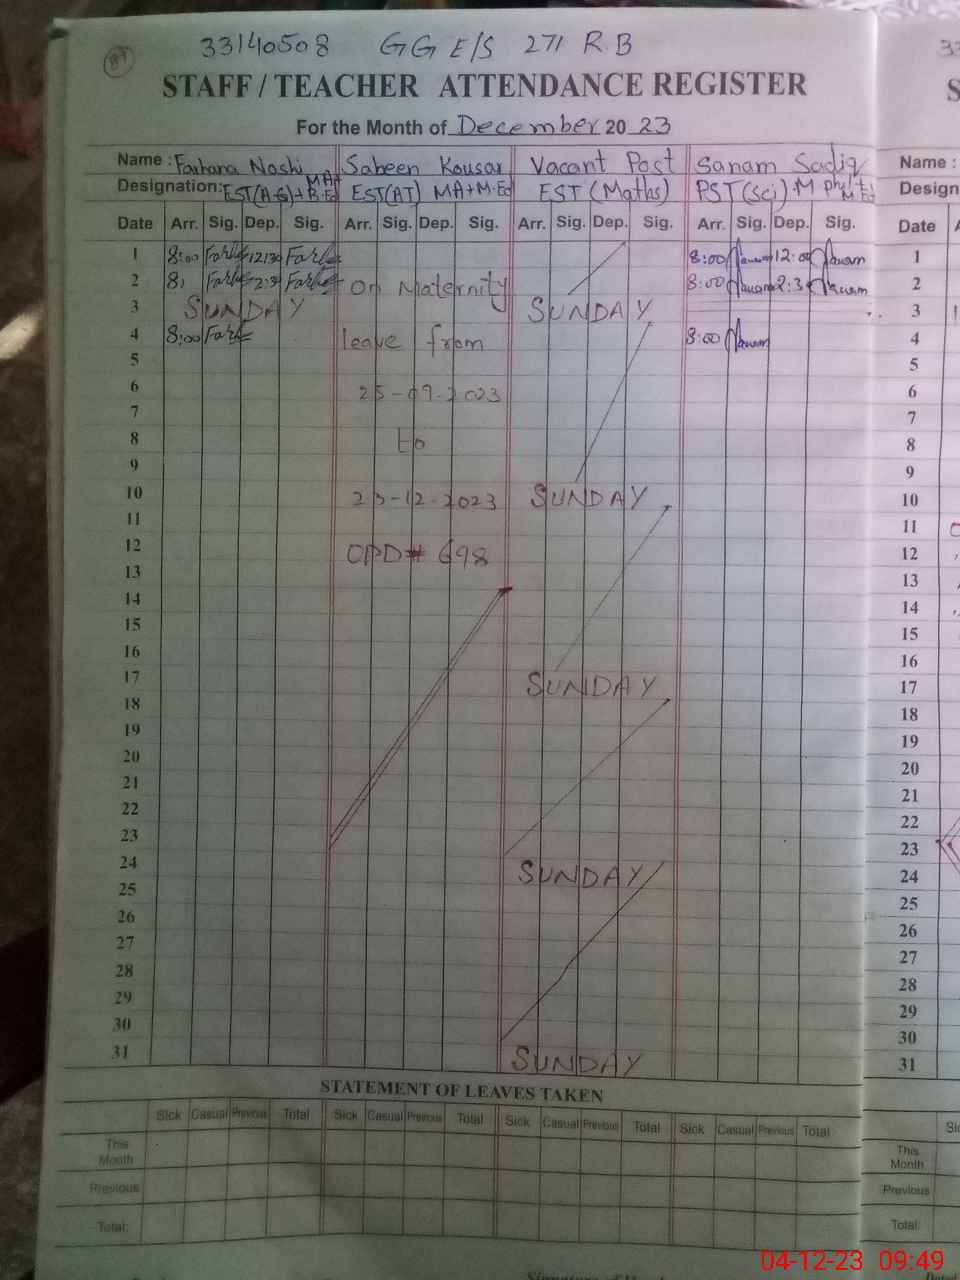 87
33140508 GG E/S 271 RB
STAFF / TEACHER ATTENDANCE REGISTER
For the Month of December 20 23
Name : Farhana Noshi Sabeen Kousar Vacant Post Sanam Sadiq Name :
Designation: EST(A-G)+B.Ed MA EST(AT) MA+M.Ed EST (Maths) PST(Sci) M phil+ M.Ed Design
Date Arr. Sig. Dep. Sig. Arr. Sig. Dep. Sig. Arr. Sig. Dep. Sig. Arr. Sig. Dep. Sig. Date
1 8:00 12:30 8:00 12:00 1
2 8: 2:30 On Maternity 8:00 2:3 2
3 SUNDAY SUNDAY 3
4 8:00 leave from 8:00 4
5 5
6 25-09-2023 6
7 7
8 to 8
9 9
10 23-12-2023 SUNDAY 10
11 11
12 OPD# 698 12
13 13
14 14
15 15
16 16
17 SUNDAY 17
18 18
19 19
20 20
21 21
22 22
23 23
24 SUNDAY 24
25 25
26 26
27 27
28 28
29 29
30 30
31 SUNDAY 31
STATEMENT OF LEAVES TAKEN
Sick Casual Previous Total Sick Casual Previous Total Sick Casual Previous Total Sick Casual Previous Total
This Month This Month
Previous Previous
Total: Total:
04-12-23 09:49